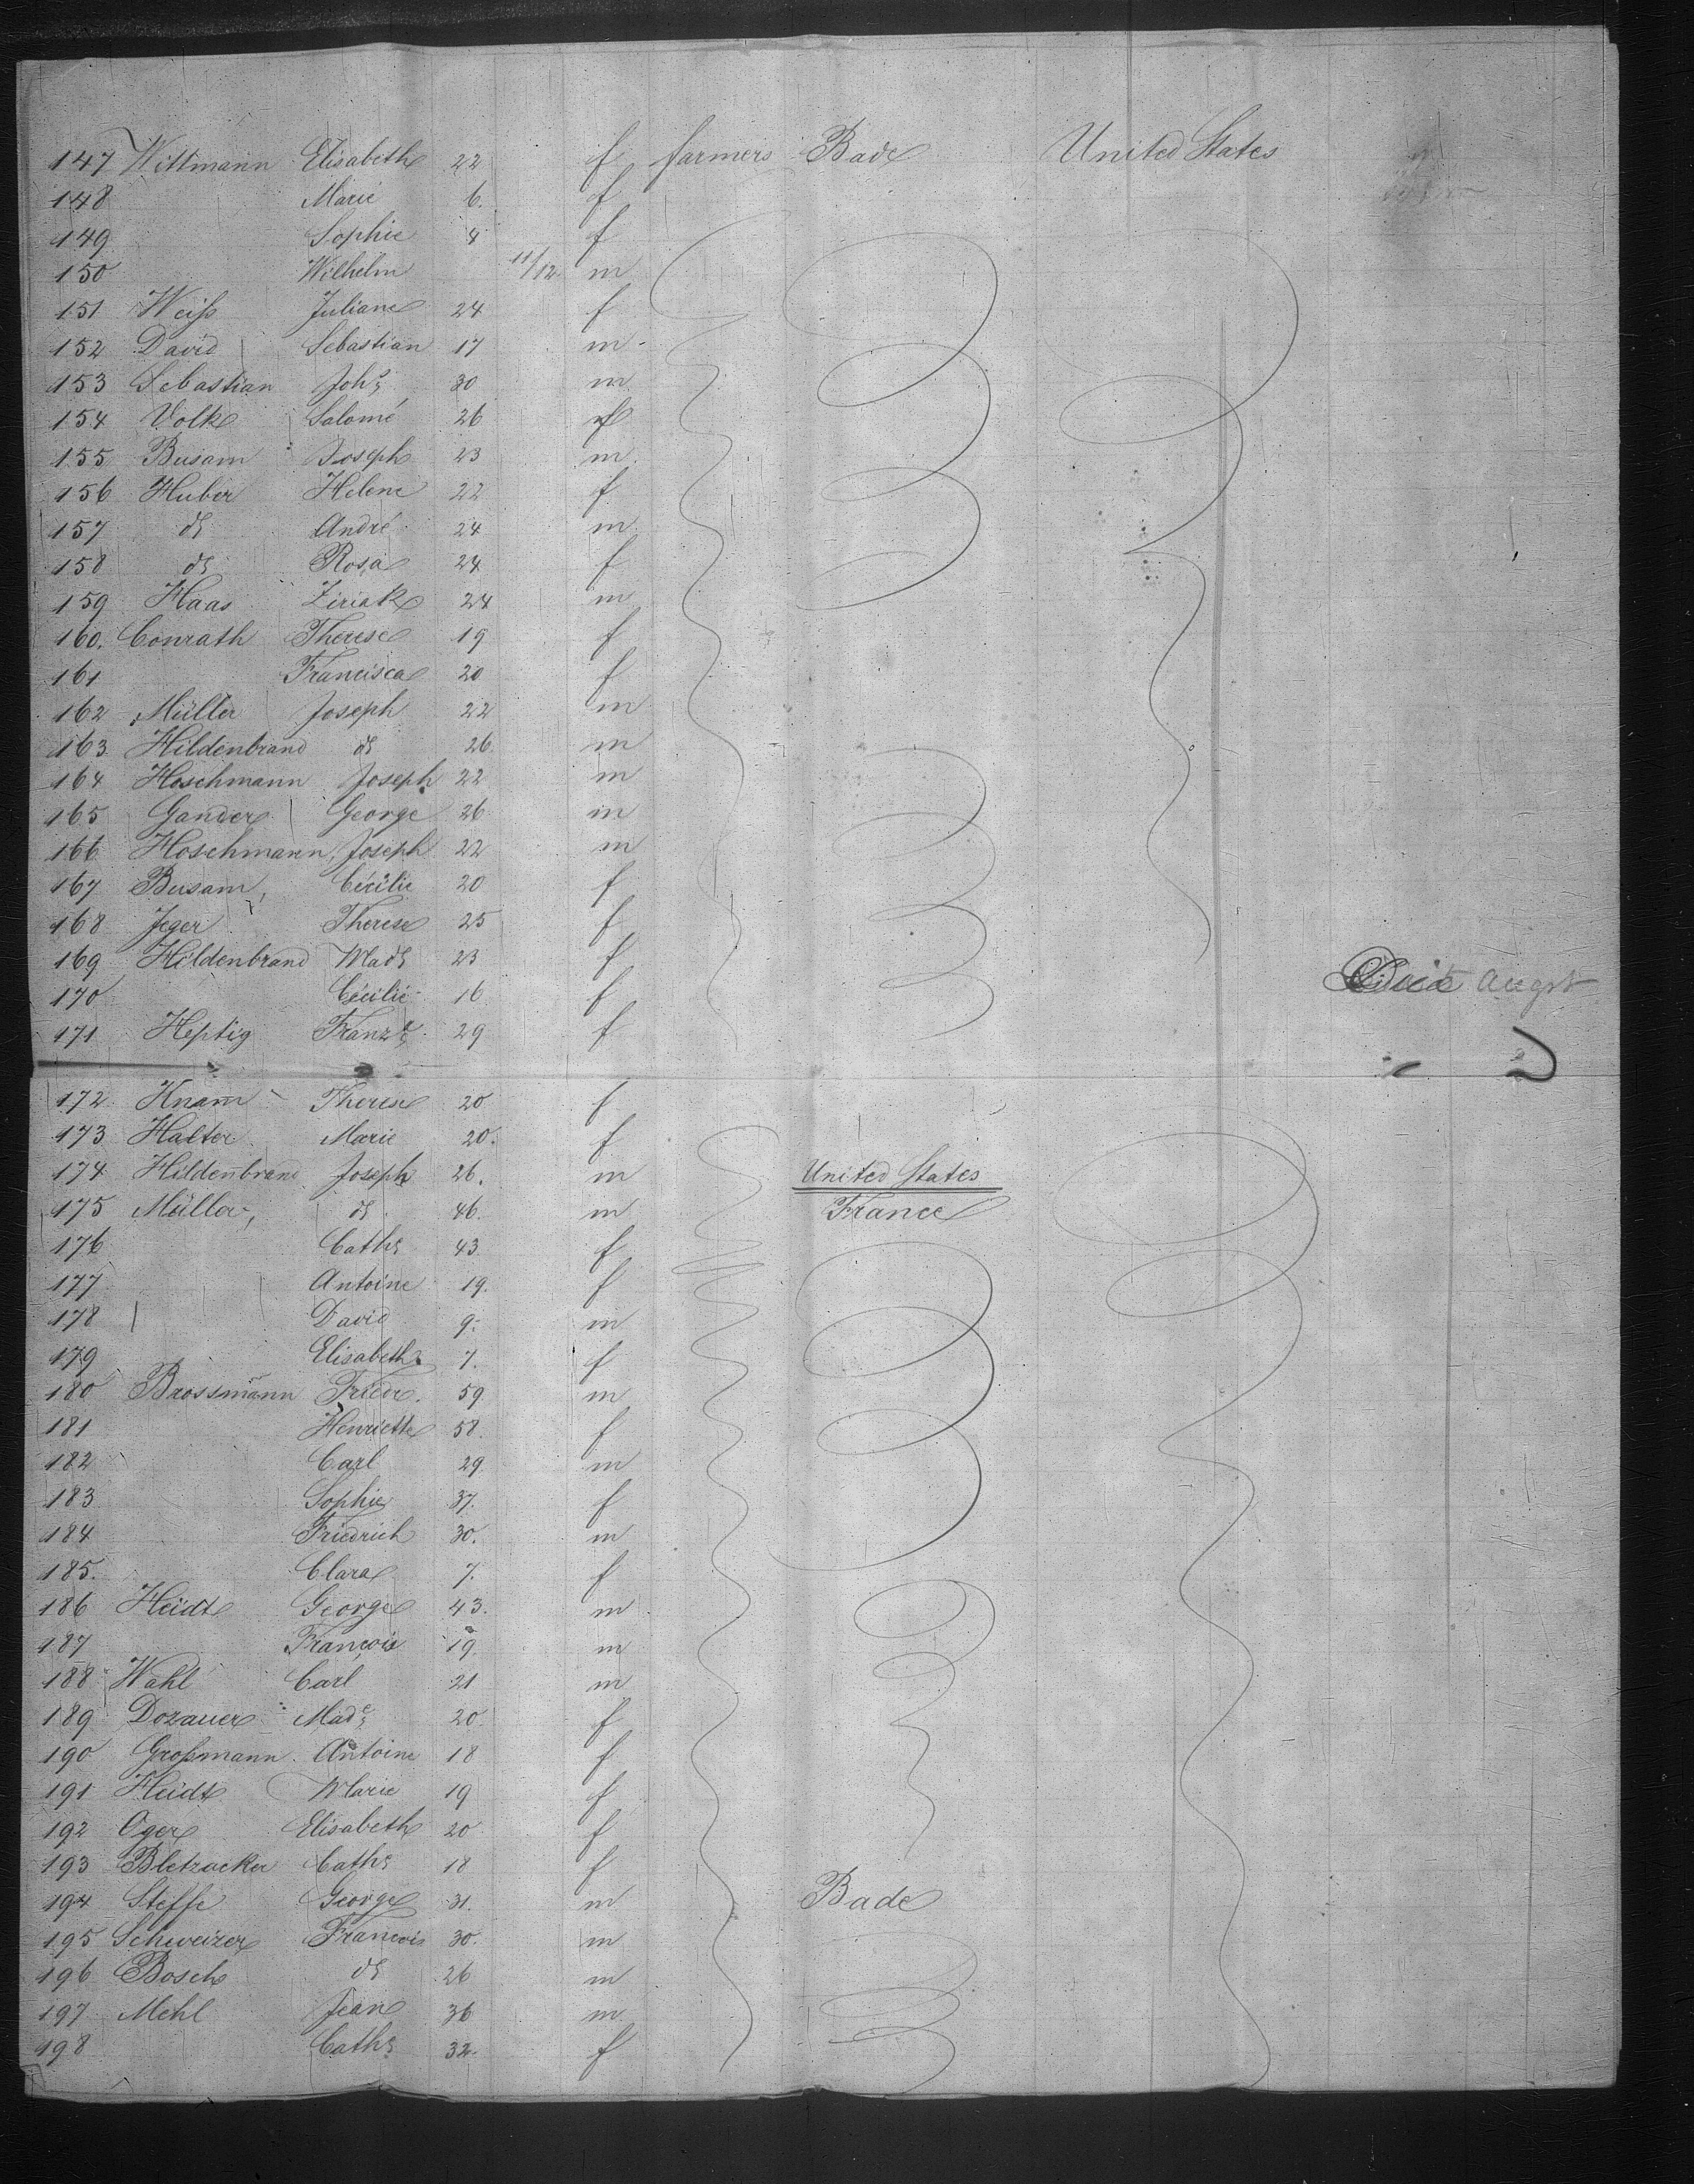 147 Wittmann Elisabeth 22 f farmers Bade United States
148 Marie 6. f
149 Sophie 4 f
150 Wilhelm 11/12 m
151 Weiſs Juliane 24 f
152 David Sebastian 17 m
153 Sebastian Johs 30 m
154 Volk Salomé 26 f
155 Busam Joseph 23 m
156 Huber Helene 22 f
157 do André 24 m
158 do Rosa 24 f
159 Haas Ziriak 24 m
160. Conrath Therese 19 f
161 Francisca 20 f
162 Müller Joseph 22 m
163 Hildenbrand do 26 m
164 Hoschmann Joseph 22 m
165 Gander George 26 m
166 Hoschmann, Joseph 22 m
167 Busam, Cécilie 20 f
168 Jeger Therese 25 f
169 Hildenbrand Made 23 f
170 Cécilie 16 f
Died Augst
171 Heptig Franze 29 f
172 Knam Therese 20 f
173 Halter Marie 20. f
174 Hildenbrand Joseph 26. m United States
175 Müller, do 46. m France
176 Cathe 43 f
177 Antoine 19. f
178 David 9. m
179 Elisabeth 7. f
180 Brossmann Friedr. 59 m
181 Henriette 58. f
182 Carl 29. m
183 Sophie 37. f
184 Friedrich 30. m
185. Clara 7. f
186 Heidt George 43. m
187 François 19 m
188 Wahl Carl 21 m
189 Dozauer Made 20 f
190 Groſsmann Antoine 18 f
191 Heidt Marie 19 f
192 Oger Elisabeth 20 f
193 Bletzacker Cathe 18 f
194 Steffe George 31. m Bade
195 Schweizer Francois 30. m
196 Bosch do 26 m
197 Mehl Jean 36 m
198 Cathe 32. f